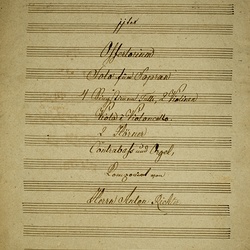 Offertorium
Solo für Sopran
4 Singstimmen, 2 Violinen
Viola, Violoncello
2 Hörner
Contrabaß und Orgel,
Componirt von
Herrn Anton